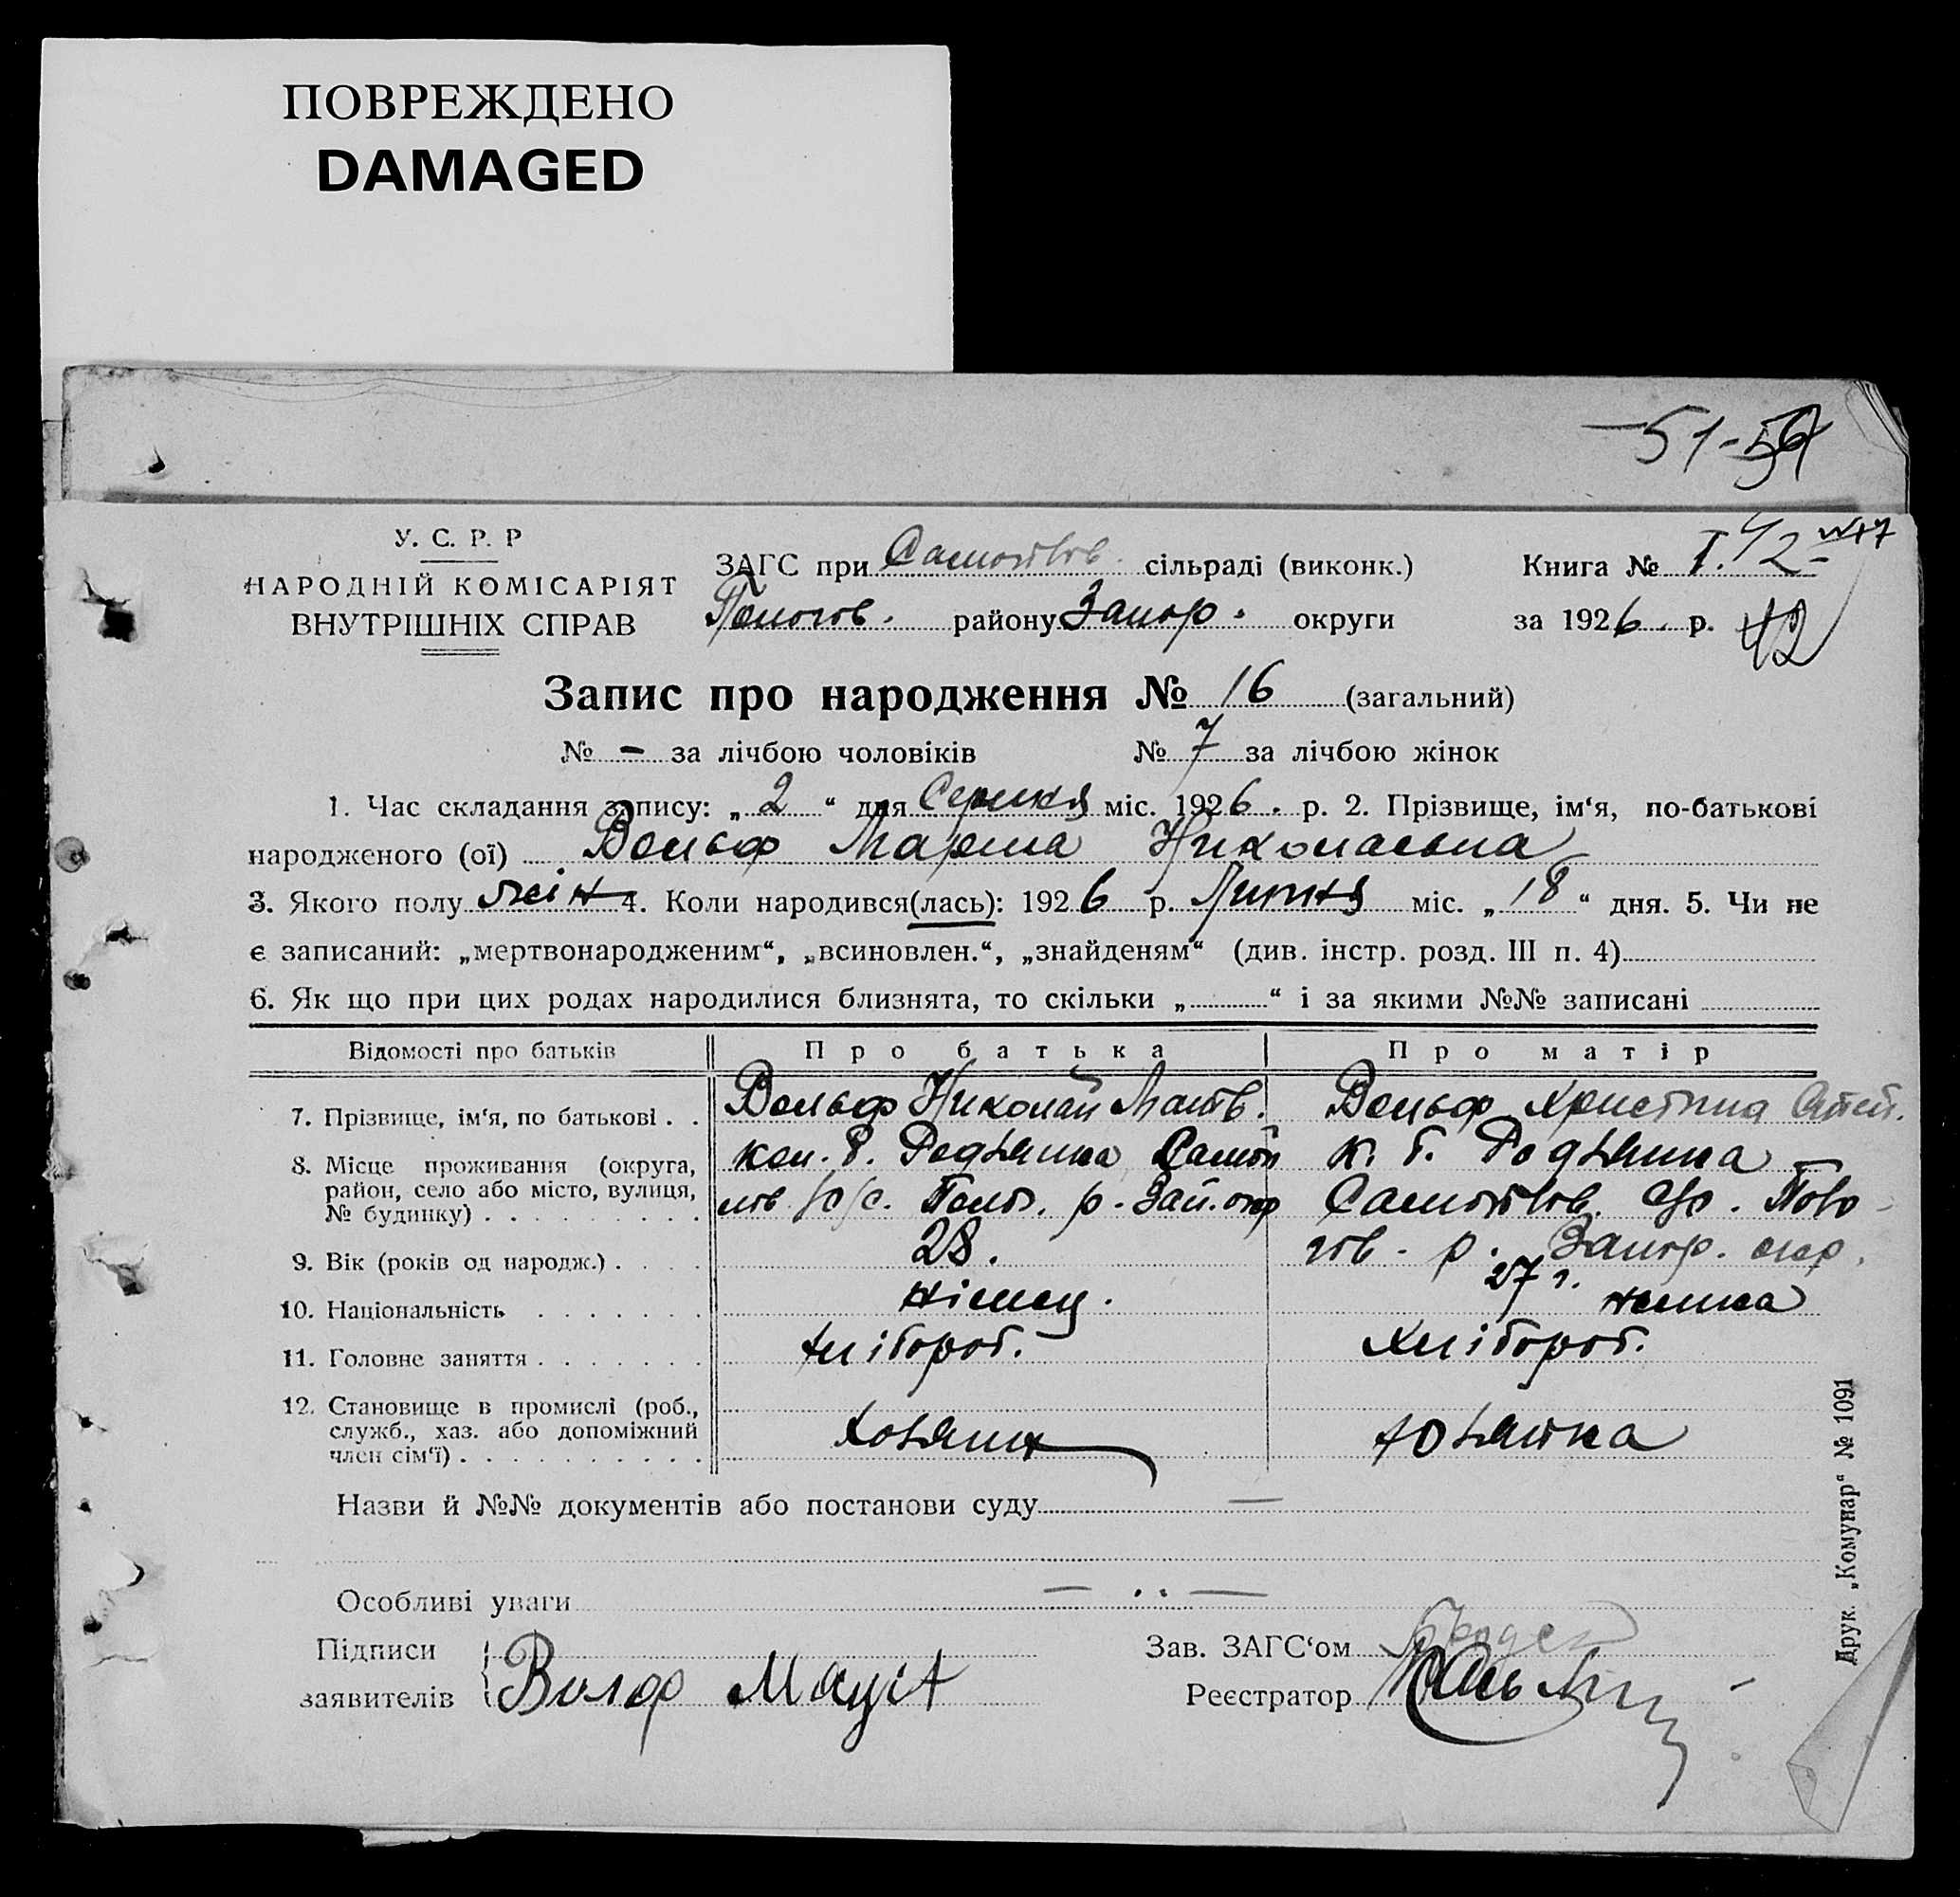 ПОВРЕЖДЕНО
DAMAGED
51-
У. С. Р. Р
НАРОДНІЙ КОМІСАРІЯТ
ВНУТРІШНІХ СПРАВ
ЗАГС при сільраді (виконк.)
Пологов. району Запор. округи
Книга № I.
за 1926 р. 42
Запис про народження № 16 (загальний)
№ - за лічбою чоловіків № 7 за лічбою жінок
1. Час складання запису: „ 2 “ дня Серпня міс. 1926. р. 2. Прізвище, ім‘я, по-батькові
народженого (ої) Вольф Мария Николаевна
3. Якого полу жін 4. Коли народився(лась): 1926 р. Липня міс. „ 18 “ дня. 5. Чи не
є записаний: „мертвонародженим“, „всиновлен.“, „знайденям“ (див. інстр. розд. III п. 4)
6. Як що при цих родах народилися близнята, то скільки „ “ і за якими №№ записані
Відомості про батьків Про батька Про матір
7. Прізвище, ім‘я, по батькові . . Вольф Николай Матв. Вольф Христина
8. Місце проживання (округа,
район, село або місто, вулиця,
№ будинку)
р. Запор. окр.
9. Вік (років од народж.) . . . . 28. 27 г.
10. Національність . . . . . . . німец. немка
11. Головне заняття . . . . . . . хлібороб. Хлібороб.
12. Становище в промислі (роб.,
служб., хаз. або допоміжний
член сім‘ї)
Хозяин Хозяйка
Назви й №№ документів або постанови суду —
Особливі уваги — . . —
Підписи
заявителів
Волф
Зав. ЗАГС‘ом
Реєстратор
Друк. „Комунар“ № 1091